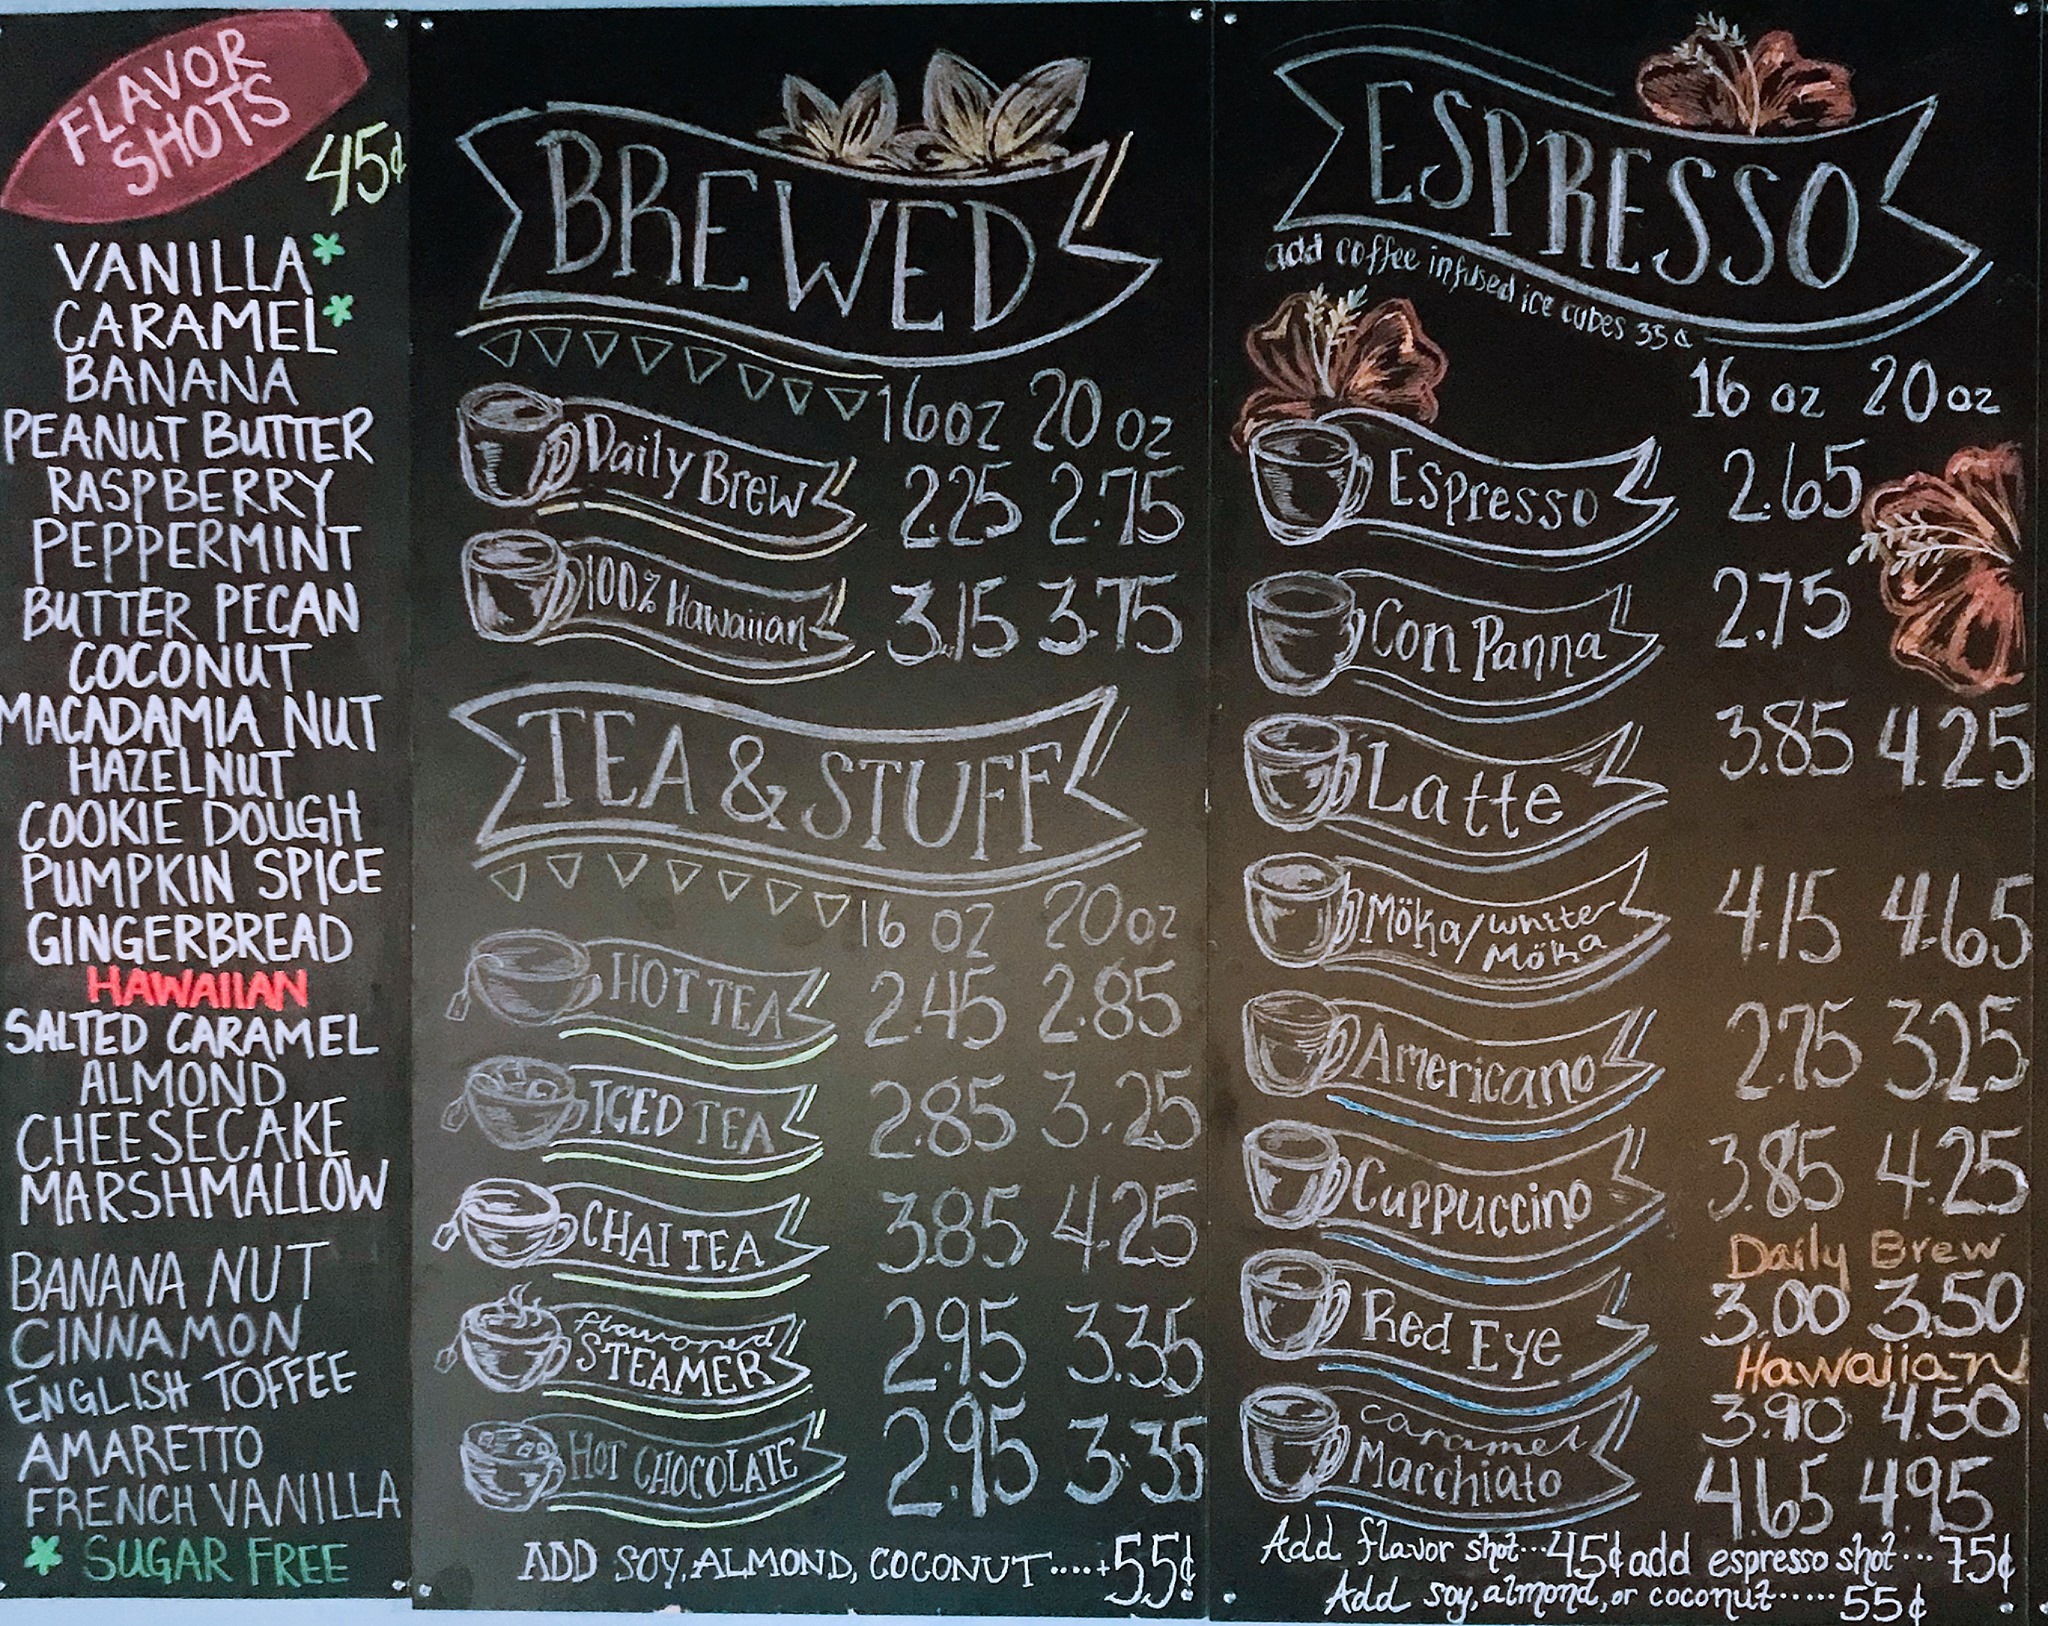 FLAVOR
SHOTS
45¢
VANILLA*
CARAMEL*
BANANA
PEANUT BUTTER
RASPBERRY
PEPPERMINT
BUTTER PECAN
COCONUT
MACADAMIA NUT
HAZELNUT
COOKIE DOUGH
PUMPKIN SPICE
GINGERBREAD
HAWAIIAN
SALTED CARAMEL
ALMOND
CHEESECAKE
MARSHMALLOW
BANANA NUT
CINNAMON
ENGLISH TOFFEE
AMARETTO
FRENCH VANILLA
* SUGAR FREE
BREWED
16 oz 20 oz
Daily Brew 2.25 2.75
100% Hawaiian 3.15 3.75
TEA & STUFF
16 oz 20 oz
HOT TEA 2.45 2.85
ICED TEA 2.85 3.25
CHAI TEA 3.85 4.25
flavored
STEAMER 2.95 3.35
HOT CHOCOLATE 2.95 3.35
ADD SOY, ALMOND, COCONUT....+55¢
ESPRESSO
add coffee infused ice cubes 35¢
16 oz 20 oz
Espresso 2.65
Con Panna 2.75
Latte 3.85 4.25
Möka/white
Möka 4.15 4.65
Americano 2.75 3.25
Cappuccino 3.85 4.25
Daily Brew
Red Eye 3.00 3.50
Hawaiian
3.90 4.50
caramel
Macchiato 4.65 4.95
Add flavor shot...45¢ add espresso shot...75¢
Add soy, almond, or coconut......55¢